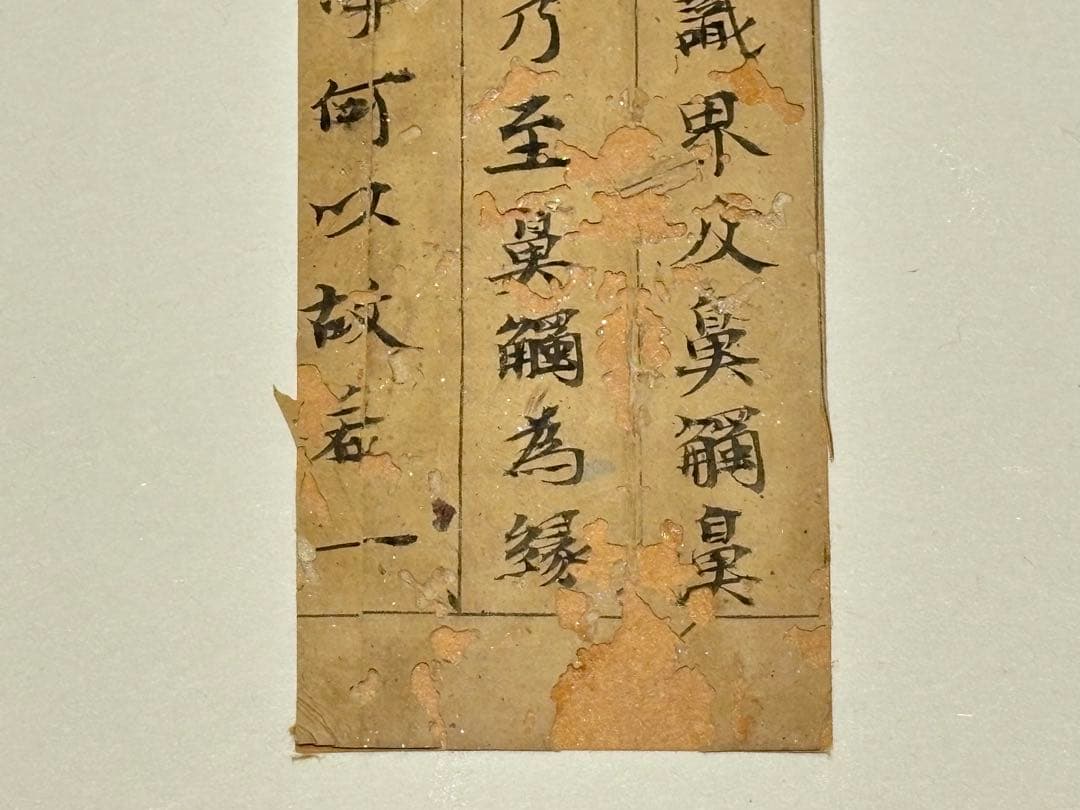 識界及鼻觸鼻
乃至鼻觸為縁
淨何以故若一